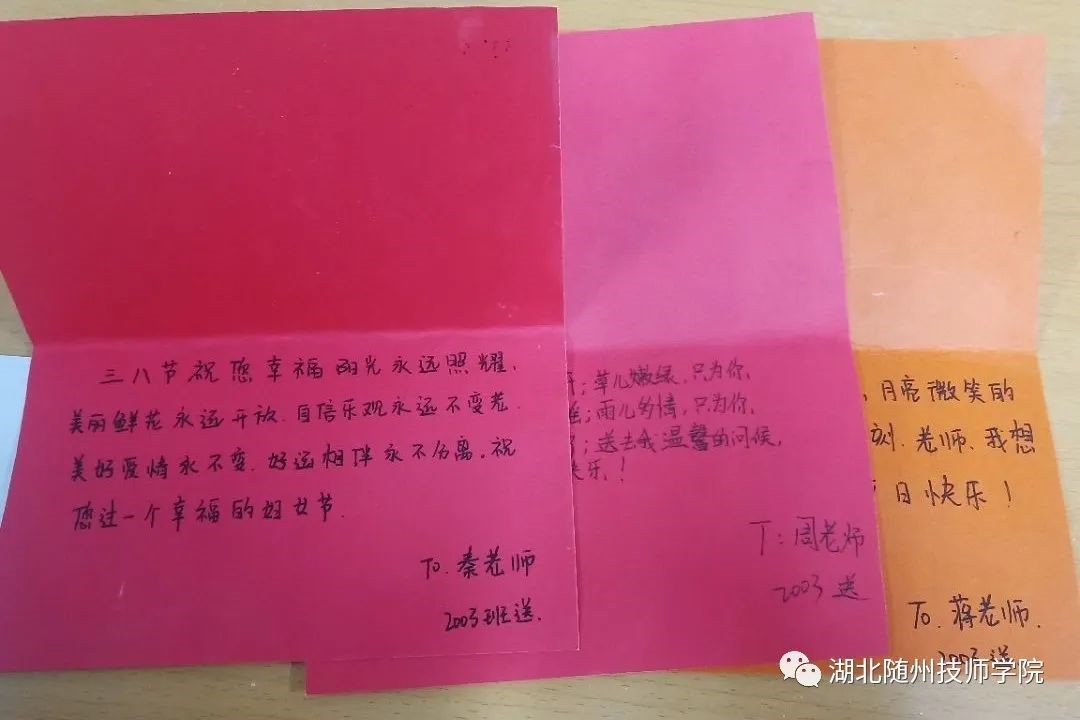 三八节祝您幸福阳光永远照耀,
美丽鲜花永远开放.自信乐观永远不变老.
美好爱情永不变.好运相伴永不分离。祝
您过一个幸福的妇女节.
To.秦老师
2003班送.
;草儿嫩绿,只为你,
;雨儿多情,只为你,
;送去我温馨的问候,
快乐,!
T:周老师
2003送
,月亮微笑的
刻.老师、我想
日快乐!
To.蒋老师.
2003送
湖北随州技师学院